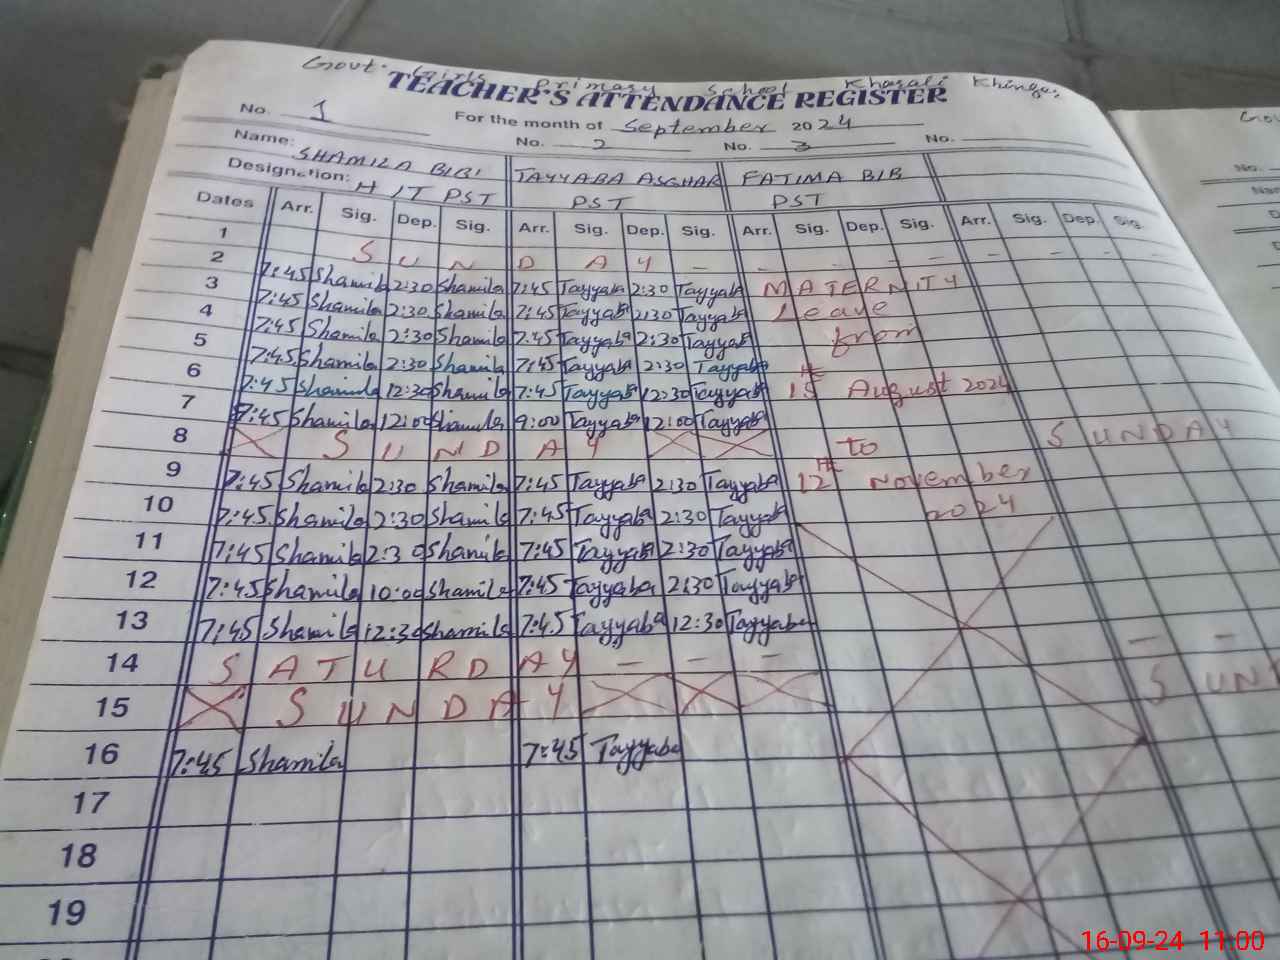 Govt. Girls Primary School Khasali Khingar
TEACHER'S ATTENDANCE REGISTER
For the month of September 2024
No. 1 No. 2 No. 3 No.
Name: SHAMILA BIBI TAYYABA ASGHAR FATIMA BIB
Designation: H/T PST PST PST
Dates Arr. Sig. Dep. Sig. Arr. Sig. Dep. Sig. Arr. Sig. Dep. Sig. Arr. Sig. Dep. Sig.
1 S U N D A Y – – – – – – – –
2 7:45 Shamila 2:30 Shamila 7:45 Tayyaba 2:30 Tayyaba MATERNITY
3 7:45 Shamila 2:30 Shamila 7:45 Tayyaba 2:30 Tayyaba Leave
4 7:45 Shamila 2:30 Shamila 7:45 Tayyaba 2:30 Tayyaba from
5 7:45 Shamila 2:30 Shamila 7:45 Tayyaba 2:30 Tayyaba
6 7:45 Shamila 12:30 Shamila 7:45 Tayyaba 12:30 Tayyaba 15th August 2024
7 7:45 Shamila 12:00 Shamila 9:00 Tayyaba 12:00 Tayyaba
8 S U N D A Y to SUNDAY
9 7:45 Shamila 2:30 Shamila 7:45 Tayyaba 2:30 Tayyaba 12th November
10 7:45 Shamila 2:30 Shamila 7:45 Tayyaba 2:30 Tayyaba 2024
11 7:45 Shamila 2:30 Shamila 7:45 Tayyaba 2:30 Tayyaba
12 7:45 Shamila 10:00 Shamila 7:45 Tayyaba 2:30 Tayyaba
13 7:45 Shamila 12:30 Shamila 7:45 Tayyaba 12:30 Tayyaba
14 S A T U R D A Y – – – – –
15 S U N D A Y S UN
16 7:45 Shamila 7:45 Tayyaba
17
18
19
No.
16-09-24 11:00